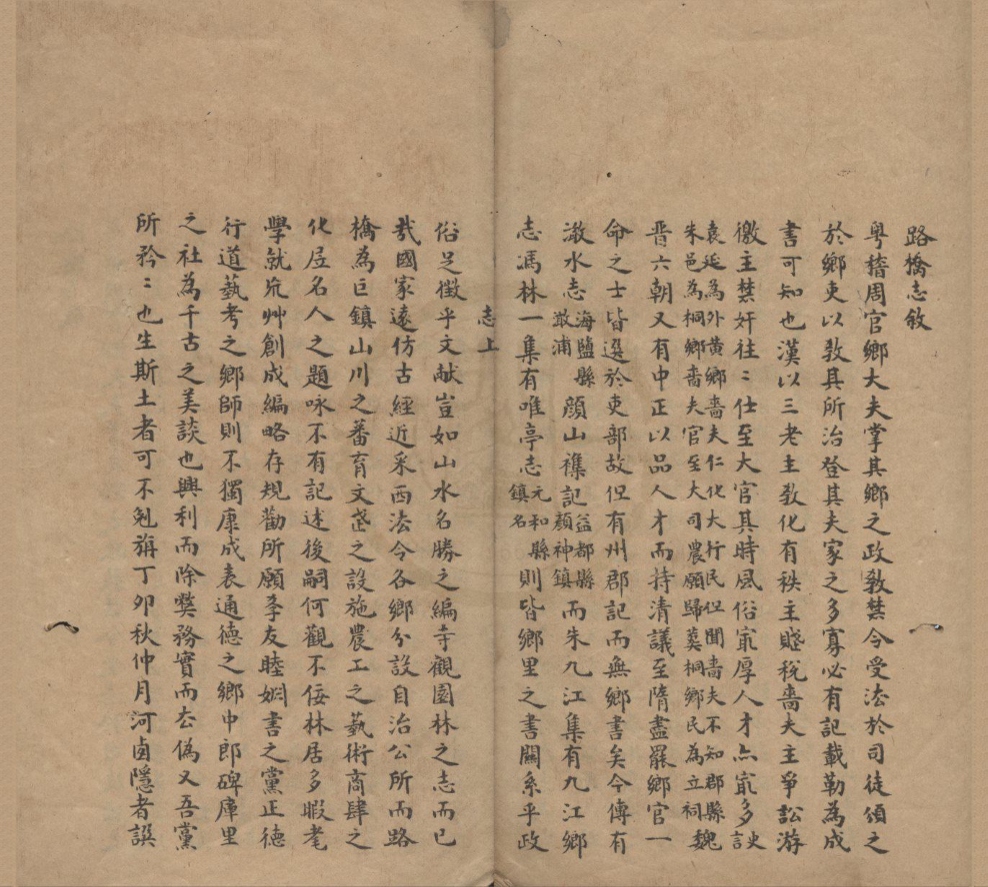 路橋志敘
粤稽周官鄉大夫掌其鄉之政教禁令受法於司徒頒之
於鄉吏以教其所治登其夫家之多寡必有記載勒為成
書可知也漢以三老主教化有秩主賤稅嗇夫主爭訟游
徼主禁奸往〻仕至大官其時風俗㝡厚人才亦㝡多
袁延為外黃鄉嗇夫仁化大行民但聞嗇夫不知郡縣
朱邑為桐鄉嗇夫官至大司農願歸葬桐鄉民為立祠魏
晋六朝又有中正以品人才而持清議至隋盡罷鄉官一
命之士皆選於吏部故但有州郡記而無鄉書矣今傳有
澉水志海鹽縣澉浦顔山襍記益都縣顔神鎮而朱九江集有九江鄉
志馮林一集有唯亭志元和縣鎮名則皆鄉里之書關系乎政
志上
俗足徵乎文献豈如山水名勝之編寺觀園林之志而已
㢤國家遠仿古經近采西法令各鄉分設自治公所而路
橋為巨鎮山川之蕃育文之設施農工之藝術商肆之
化居名人之題咏不有記述後嗣何觀不佞林居多暇耄
學就荒艸創成編略存規勸所願孝友睦婣書之黨正德
行道藝考之鄉師則不獨康成表通德之鄉中郎碑庫里
之社為千古之美談也興利而除獘務實而去偽又吾黨
所矜〻也生斯土者可不勉旃丁卯秋仲月河卤隱者譔